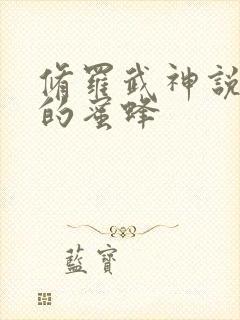 脩羅武神說
的蜜蜂
藍寶